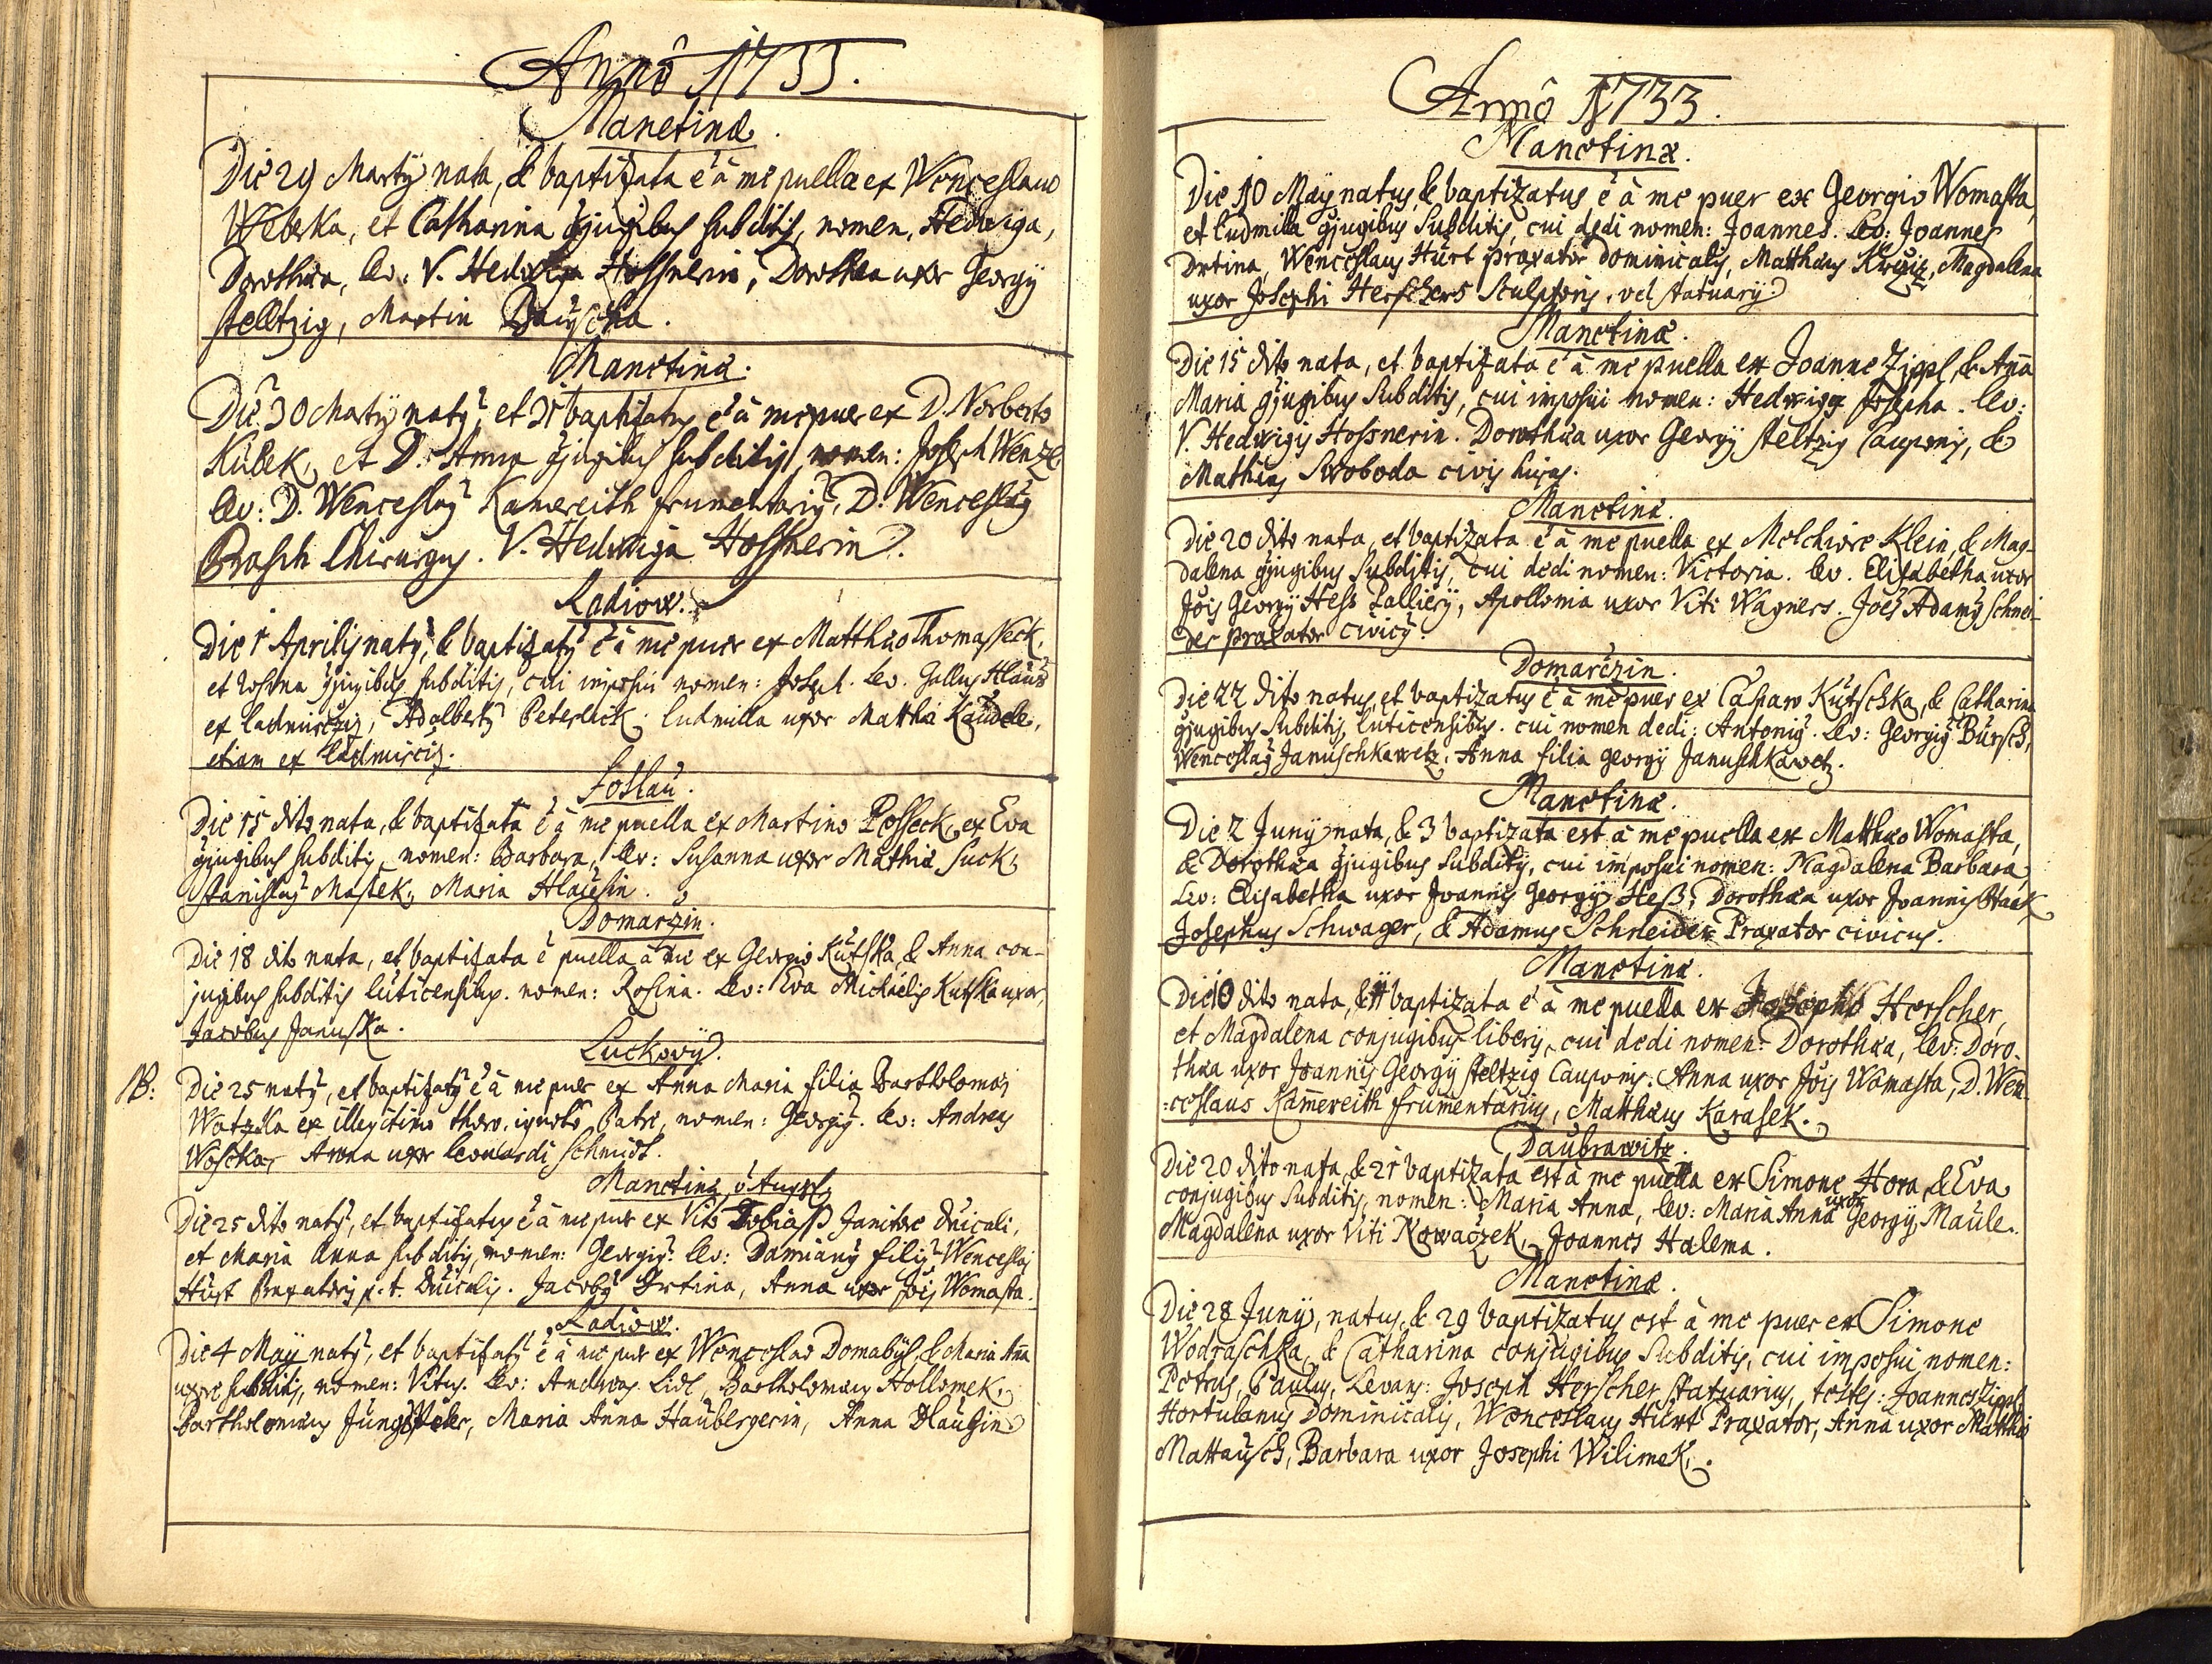 Annô 1733.
Manetinæ.
Die 29 Martÿ nata, & baptizata ê â me puella ex Wenceslao
Weberka, et Catharina gjugibus subditis, nomen, Hedwiga,
Dorothæa, lev: V. Hedwiga Hossnerin, Dorothea uxor Georgÿ
stelltzig, Martin
Manetinæ.
Die 30 Martÿ natꝰ, et 31 baptizatus ê â me puer ex D. Norberto
Kubek, et D. Anna gjugibus subditis, nomen: Joseph Wenzl
lev: D. Wenceslaꝰ Kamereith frumentariꝰ, D. Wenceslaꝰ
Prasch Chirurgus. V. Hedwiga Hossnerin.
Ladiow.
Die 1 Aprilis natꝰ, & baptizatꝰ ê â me puer ex Matthæo Thomasseck,
et Rosina gjugibus subditis, cui imposui nomen: Joseph. Lev. Gallus Klaus
ex ladmirczig, Adalbertꝰ Peterlick, ludmilla uxor Matthæ Kaudele,
etiam ex ladmirciz.
Losslau.
Die 15 dito nata, & baptizata ê â me puella ex Martino Posseck, ex Eva
gjugibus subditis, nomen: Barbara, lev: Susanna uxor Mathiæ Suck,
Stanislaꝰ Massek, Maria Hlausin.
Domarzin.
Die 18 dito nata, et baptizata ê puella â me ex Georgio Kutska, & Anna con-
jugibus subditis luticensibus. nomen: Rosina. Lev: Eva Michaelis Kutska uxor,
Jacobus Januska.
Luckovÿ.
NB: Die 25 natꝰ, et baptizatꝰ ê â me puer ex Anna Maria filia Bartholomæi
Watzka ex illegitimo thoro, ignoto Patre, nomen: Georgiꝰ. lev: Andreas
Woscka, Anna uxor Leonardi Schmidt.
Manetinæ,
Die 25 dito natꝰ, et baptizatus ê â me puer ex Vito Tobiass Janitore Dnicali,
et Maria Anna subditis, nomen: Georgiꝰ. lev: Damianꝰ filiꝰ Wenceslai
Hürt Praxatoris p. t. Dnicalis. Jacobꝰ Drtina, Anna uxor Jois Womasta.
Ladiow.
Die 4 Maÿ natꝰ, et baptizatꝰ ê â me puer ex Wenceslao Domabÿl, & Maria Ana
uxore subditis, nomen: Vitus. lev: Andreas Lidl, Bartholomæus Hollomek,
Bartholomæus, Maria Anna Haubergerin, Anna Hlausin
Annô 1733.
Manetinæ.
Die 10 Maÿ natus, & baptizatus ê â me puer ex Georgio Womasta,
et Ludmilla gjugibus Subditis, cui dedi nomen: Joannes. Lev: Joannes
Drtina, Wenceslaus Hürt praxator Dominicalis, Matthæus, Magdalena
uxor Josephi Herschers Sculptoris, vel statuarÿ
Manetinæ.
Die 15 dito nata, et baptizata ê â me puella ex Joanne Zippl, & Ana
Maria gjugibus Subditis, cui imposui nomen: Hedwigis Josepha. Lev:
V. Hedwigis Hossnerin. Dorothæa uxor Georgÿ steltzig Cauponis, &
Mathias Swoboda civis hujas.
Manetinæ.
Die 20 dito nata, et baptizata ê â me puella ex Melchiore Klein, & Mag-
dalena gjugibus Subditis, cui dedi nomen: Victoria. lev. Elisabetha uxor
Jois Georgÿ Hess, Apollonia uxor Viti Wagners. Joes Adamꝰ Schnei-
der praxator civicꝰ.
Domarčzin.
Die 22 dito natus, et baptizatus ê â me puer ex Casparo Kutschka, & Catharina
gjugibus Subditis, luticensibus. cui nomen dedi: Antoniꝰ. Lev: Georgiꝰ Bursch,
Wenceslaꝰ Januschkawetz, Anna filia Georgÿ Januschkawetz.
Manetinæ.
Die 2 Junÿ nata, & 3 baptizata est â me puella ex Matthæo Womasta,
& Dorothæa gjugibus Subditis, cui imposui nomen: Magdalena Barbara,
Lev: Elisabetha uxor Joannis Georgÿ Heß, Dorothæa uxor Joannis Hack
Josephus Schwager, & Adamus Schneider Praxator civicus.
Manetinæ.
Die 10 dito nata, & 11 baptizata ê â me puella ex Josepho Herscher,
et Magdalena conjugibus liberis, cui dedi nomen: Dorothæa, lev: Doro-
thæa uxor Joannis Georgÿ steltzig Cauponis. Anna uxor Jois Womasta, D. Wen-
:ceslaus Kamereith frumentarius, Matthæus Karasek.
Daubrawitz.
Die 20 dito nata, & 21 baptizata est â me puella ex Simone Hora, & Eva
conjugibus Subditis, nomen: Maria Anna, lev: Maria Anna uxor Georgÿ Maule.
Magdalena uxor Viti Kowaczek, Joannes Halema.
Manetinæ.
Die 28 Junÿ, natus, & 29 baptizatus est â me puer ex Simone
Wodraschka, & Catharina conjugibus Subditis, cui imposui nomen:
Petrus, Paulus, Levans: Joseph Herscher statuarius, testes: Joannes Zippl
Hortulanus Dominicalis, Wenceslaus Hürt Praxator, Anna uxor Matthæi
Mattausch, Barbara uxor Josephi Wilimek.